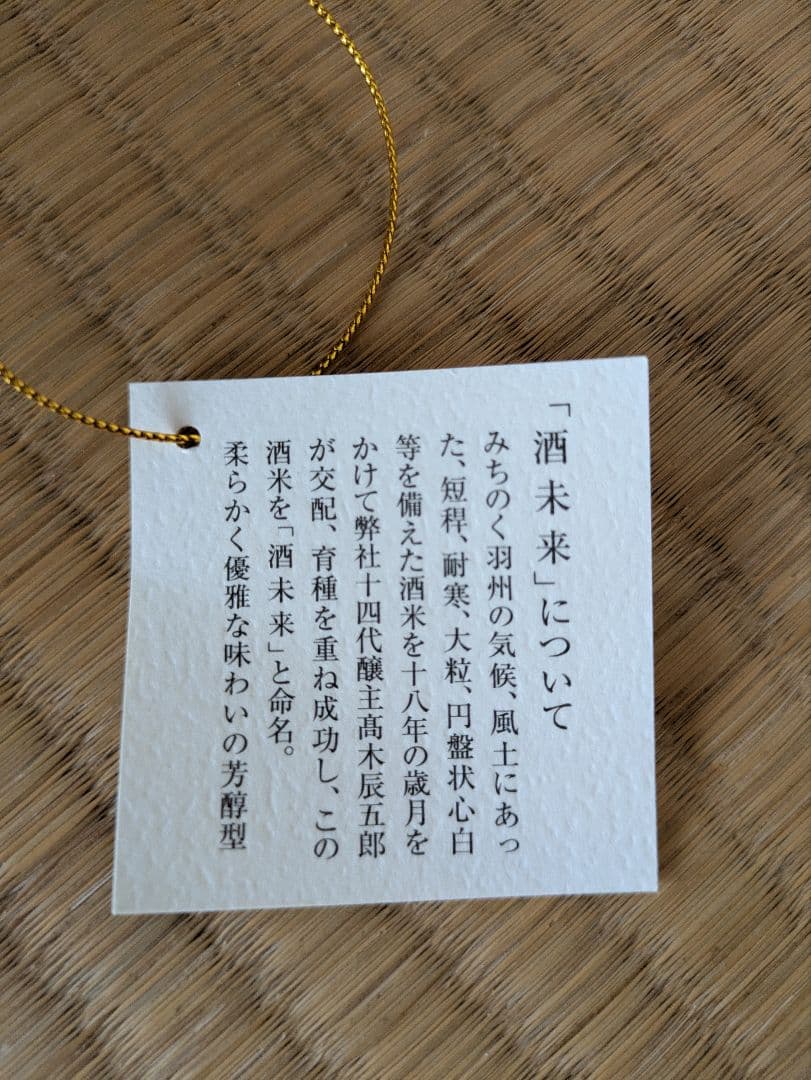 「酒未来」について
みちのく羽州の気候、風土にあっ
た、短稈、耐寒、大粒、円盤状心白
等を備えた酒米を十八年の歳月を
かけて弊社十四代醸主髙木辰五郎
が交配、育種を重ね成功し、この
酒米を「酒未来」と命名。
柔らかく優雅な味わいの芳醇型